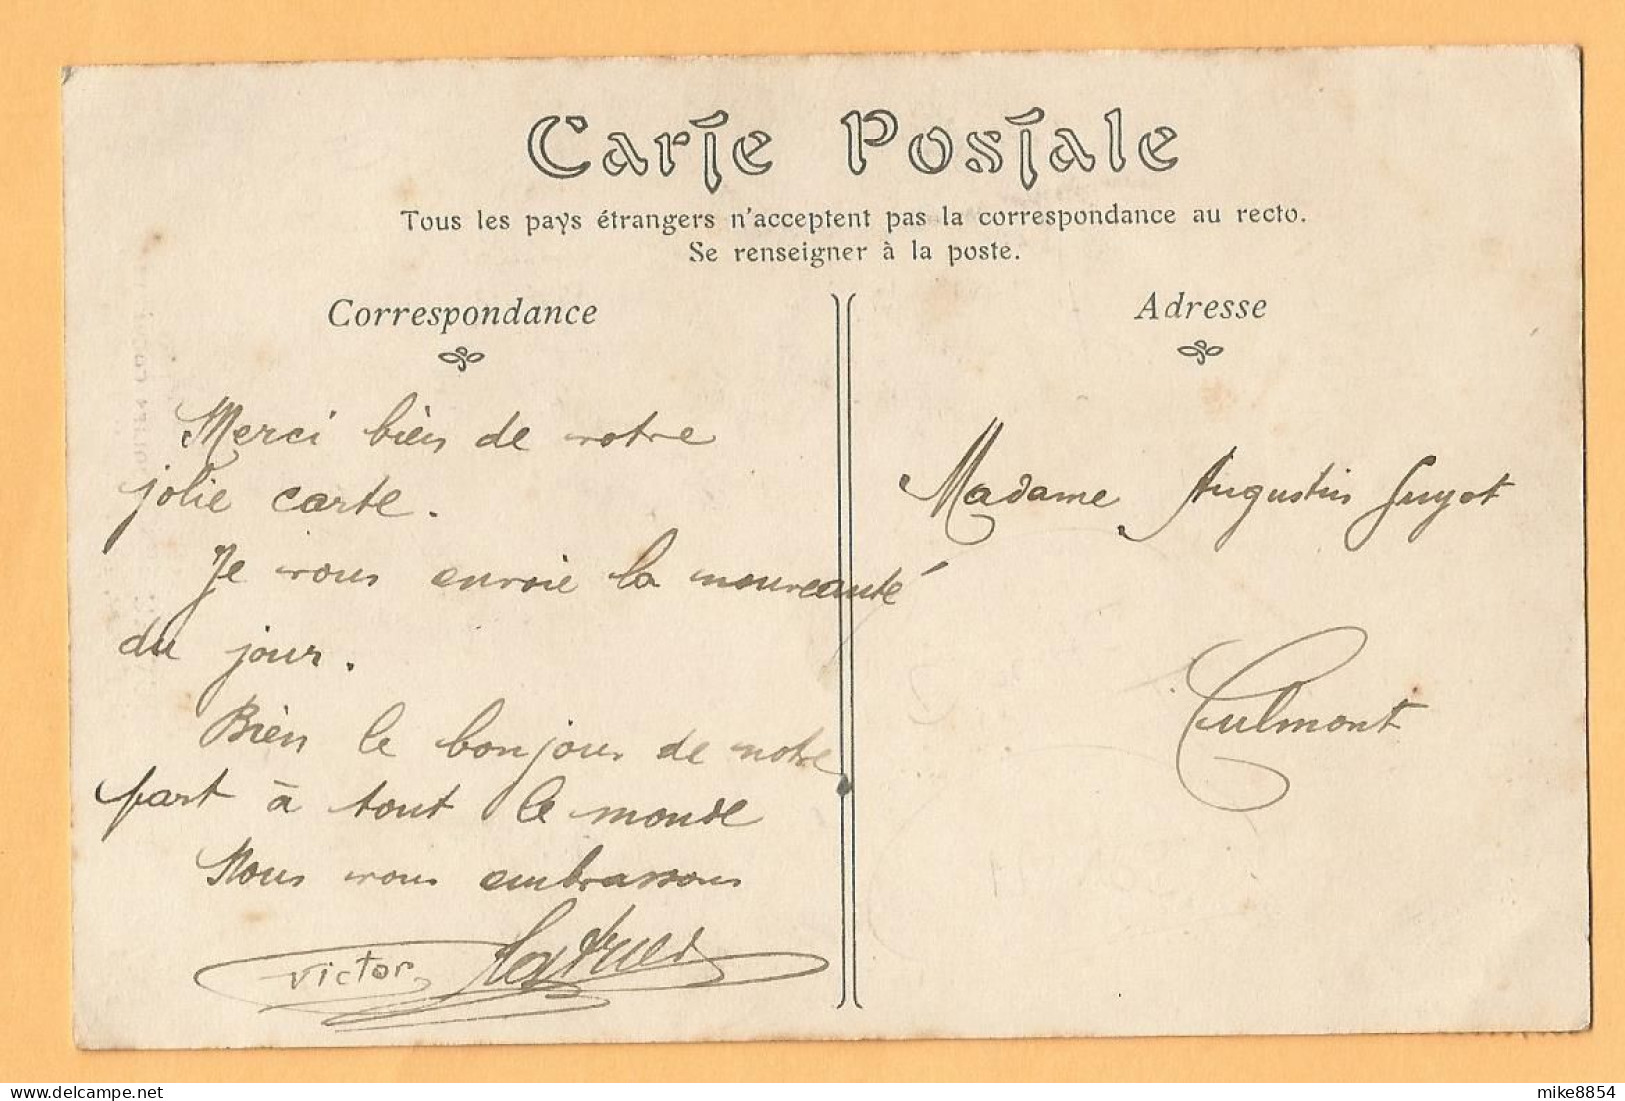 Carte Postale
Tous les pays étrangers n'acceptent pas la correspondance au recto.
Se renseigner à la poste.
Correspondance
Adresse
Merci bien de votre
jolie carte.
Je vous envoie la nouveauté
du jour.
Bien le bonjour de notre
part à tout le monde
Nous vous embrassons
Victor
Madame Augustin Guyot
Culmont
delcampe.net
mike8854